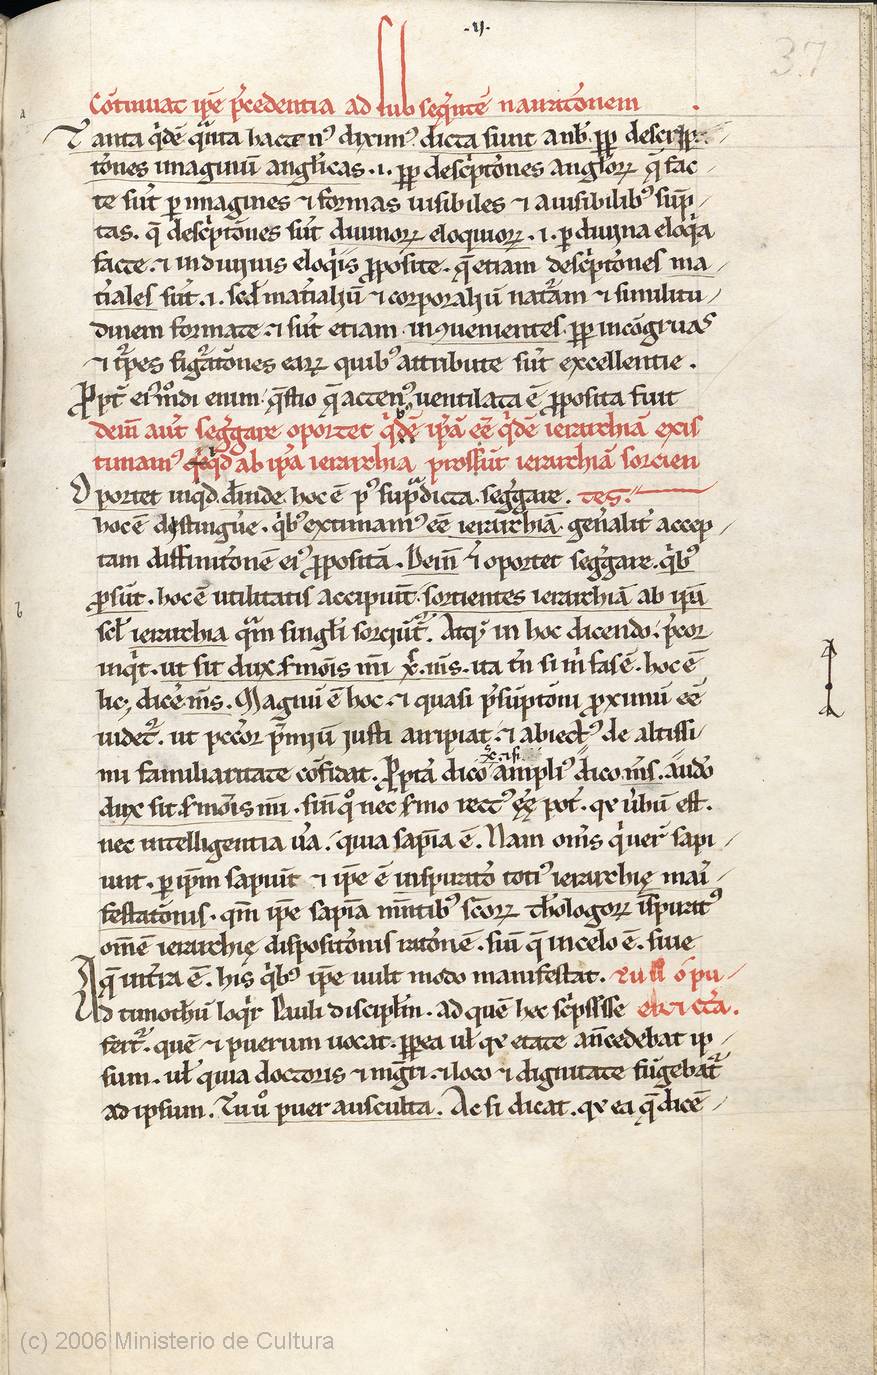 .ii.
37
Cōtinuat ip̄e p̄cedentia ad subseq̄ntē narratōnem
Tanta q̇dē q̄nta hacten᷒ dixim᷒ dicta sunt a nob̄ ꝓp̄ descrip
tōnes imaginū anglicas .i. ꝓp̄ desc̄ptōnes angl̄oꝝ q̄ fac
te sūt ꝑ imagines ⁊ formas uisibiles ⁊ a uisibilib᷒ sūp
tas. q̄ desc̄ptōnes sūt diuinoꝝ eloquioꝝ .i. ꝑ diuina eloq̇a
facte. ⁊ in diuinis eloq̇is ꝓposite. q̄ etiam desc̄ptōnes ma
t̄iales sūt .i. scd̄ mat̄ialiū ⁊ corporaliū nat̄am ⁊ similitu
dinem formate. ⁊ sūt etiam inꝯuenientes ꝓp̄ incōgruas
⁊ t̄pes fiḡatōnes eaꝝ quib᷒ attribute sūt excellentie.
Ppt̄ ei᷒mōdi enim q̄stio q̄ acten᷒ uentilata ē ꝓposita fuit
dein̄ aut̄ seḡgare oportet q̇dē ip̄ā eē q̇dē ierarchiā exis
timam᷒ q̇d ab ip̄a ierarchia prossūt ierarchiā sorcien
Oportet inq̇d d̄inde hoc ē p᷒ sup̄dicta seḡgare. tes.
hoc ē distingue. q̇b᷒ extimam᷒ eē ierarchiā gen̄alit̄ accep
tam diffinitōnē ei᷒ ꝓpositā. Dein̄ oportet seḡgare. q̇b᷒
ꝓsūt. hoc ē utilitatis accipiūt. sortientes ierarchiā ab ip̄a
scl̄ ierarchia q̄m singl̄i sorciūt᷒. Atq; in hoc dicendo. p̄cor
inq̇t. ut sit dux s̄mōis mī x̄. m̄s. ita tn̄ si m̄ fas ē. hoc ē
lic; dicē m̄s. Magnū ē hoc. ⁊ quasi p̄sūptōni proximū eē
uidet᷒. ut pccōr p̄miū iusti arripiat. ⁊ abiect᷒ de altissi
mi familiaritate cōfidat. Ppt̄a dico ampli᷒ dico m̄s. audō
dux sit s̄mōis mī. sin̄ q̊ nec s̄mo rect᷒ eē pot̄. qr u̇bū est.
nec intelligentia ūa. quia sapīa ē. Nam om̄s q̇ uer̄ sapi
unt. ꝑ ip̄m sapiūt ⁊ ip̄e ē inspiratō toti᷒ ierarchię mai
festatōnis. qm̄ ip̄e sapīa m̄tib᷒ scōꝝ theologoꝝ īspirat᷒
om̄ē ierarchię dispositōnis ratōnē. siū q̄ in celo ē. siue
q̄ in t̄ra ē. his q̇b᷒ ip̄e uult modo manifestat. Tu ū o pu
Ad timothiū loq̇r Pauli discipl̄m. ad quē hec sc̄psisse er ⁊ cēta.
fert᷒. quē ⁊ puerum uocat. ꝓp̄ea ul̄ qr etate an̄cedebat ip
sum. ul̄ quia doctoris ⁊ mgr̄i. ⁊ loco ⁊ dignitate fūgebat᷒
ad ipsum. Tu u̇ puer ausculta. Ac si dicat. qr ea q̄ dicē
(c) 2006 Ministerio de Cultura